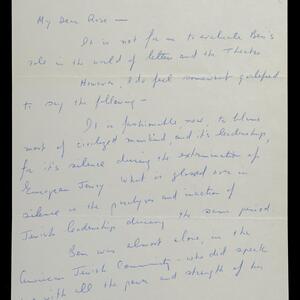 My Dear Rose —
It is not for me to evaluate Ben's
role in the world of letters and the Theatre
However, I do feel somewhat qualified
to say the following —
It is fashionable now, to blame
most of civilized mankind, and it's leadership,
for it's silence during the extermination of
European Jewry what is glossed over in
silence is the paralysis and inaction of
Jewish leadership during the same period
Ben was almost alone, in the
American Jewish Community - who did speak
with all the power and strength of his